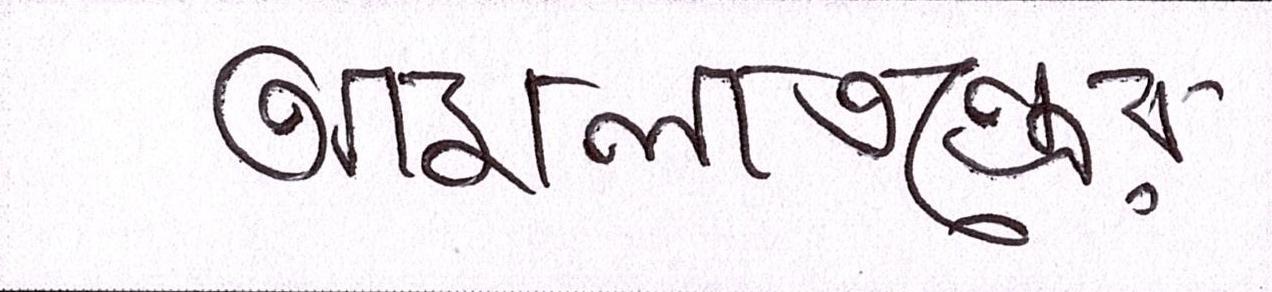 আমলাতন্ত্রের